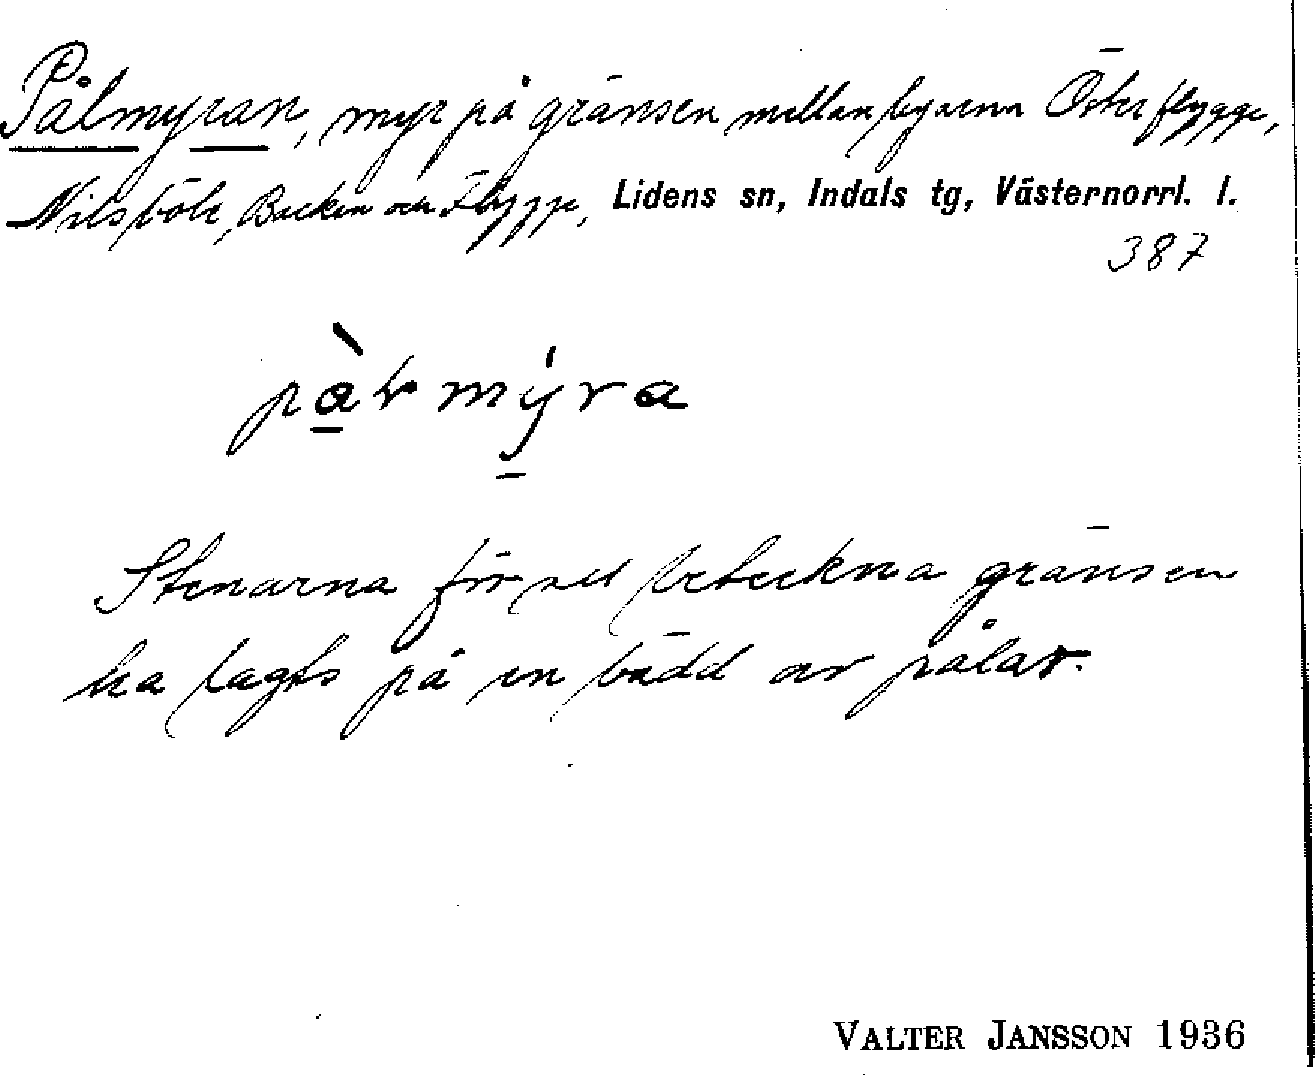 Pålmyran, myr på gränsen mellan byarna Österflygge,
Nilsböle, Backen och Flygge, Lidens sn, Indals tg, Västernorrl. l.
387
pàlmýra
Stenarna för att beteckna gränsen
ha lagts på en bädd av pålar.
VALTER JANSSON 1936